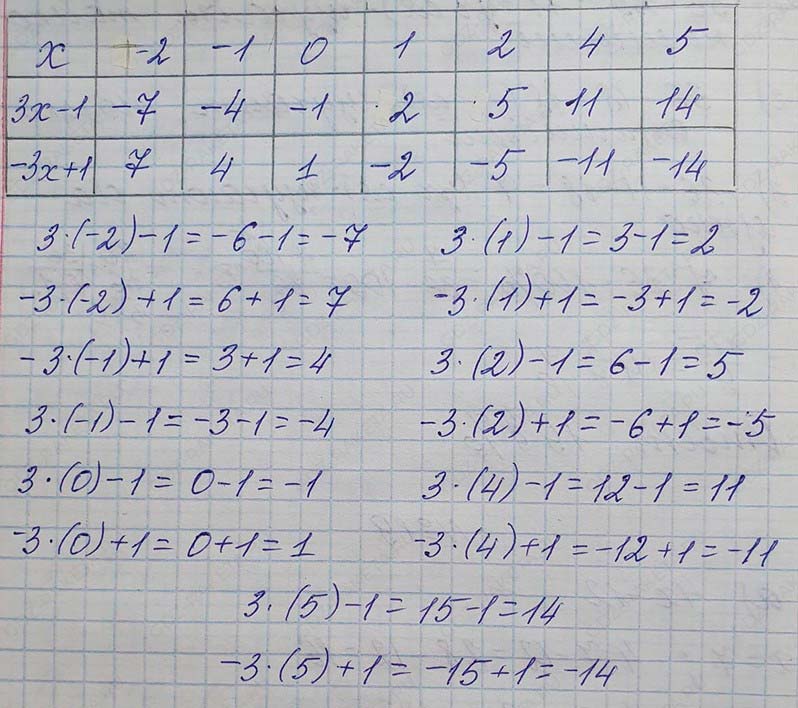 x -2 -1 0 1 2 4 5
3x-1 -7 -4 -1 2 5 11 14
-3x+1 7 4 1 -2 -5 -11 -14
3·(-2)-1=-6-1=-7 3·(1)-1=3-1=2
-3·(-2)+1=6+1=7 -3·(1)+1=-3+1=-2
-3·(-1)+1=3+1=4 3·(2)-1=6-1=5
3·(-1)-1=-3-1=-4 -3·(2)+1=-6+1=-5
3·(0)-1=0-1=-1 3·(4)-1=12-1=11
-3·(0)+1=0+1=1 -3·(4)+1=-12+1=-11
3·(5)-1=15-1=14
-3·(5)+1=-15+1=-14